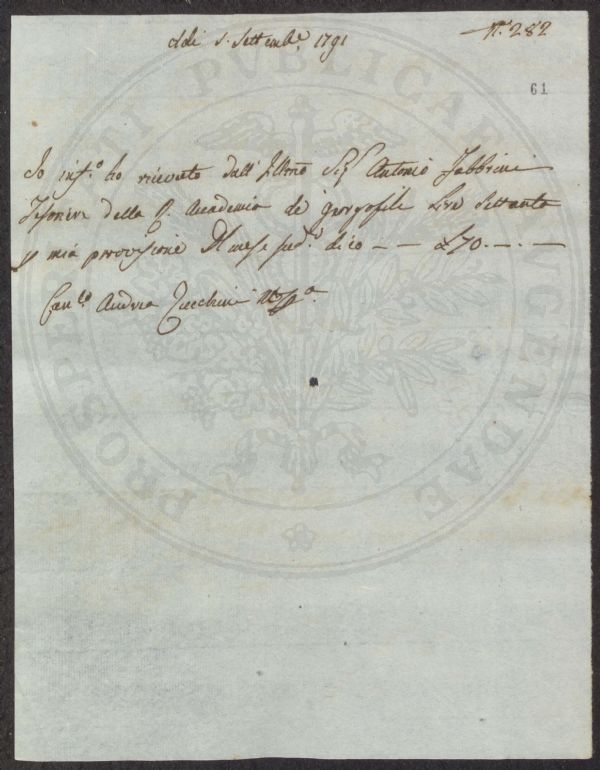 Adi 5. Settemb.e 1791
N.o 282
61
Io inf.o ho ricevuto dall' Ill.mo Sig.r Antonio Fabbrini
Tesoriere della R. Accademia de Georgofili Lire Settanta
p mia provisione del mese sud.o dico — — £70.—.—
Can.co Andrea Zucchini
PROSPERITATI PUBLICAE AUGENDAE